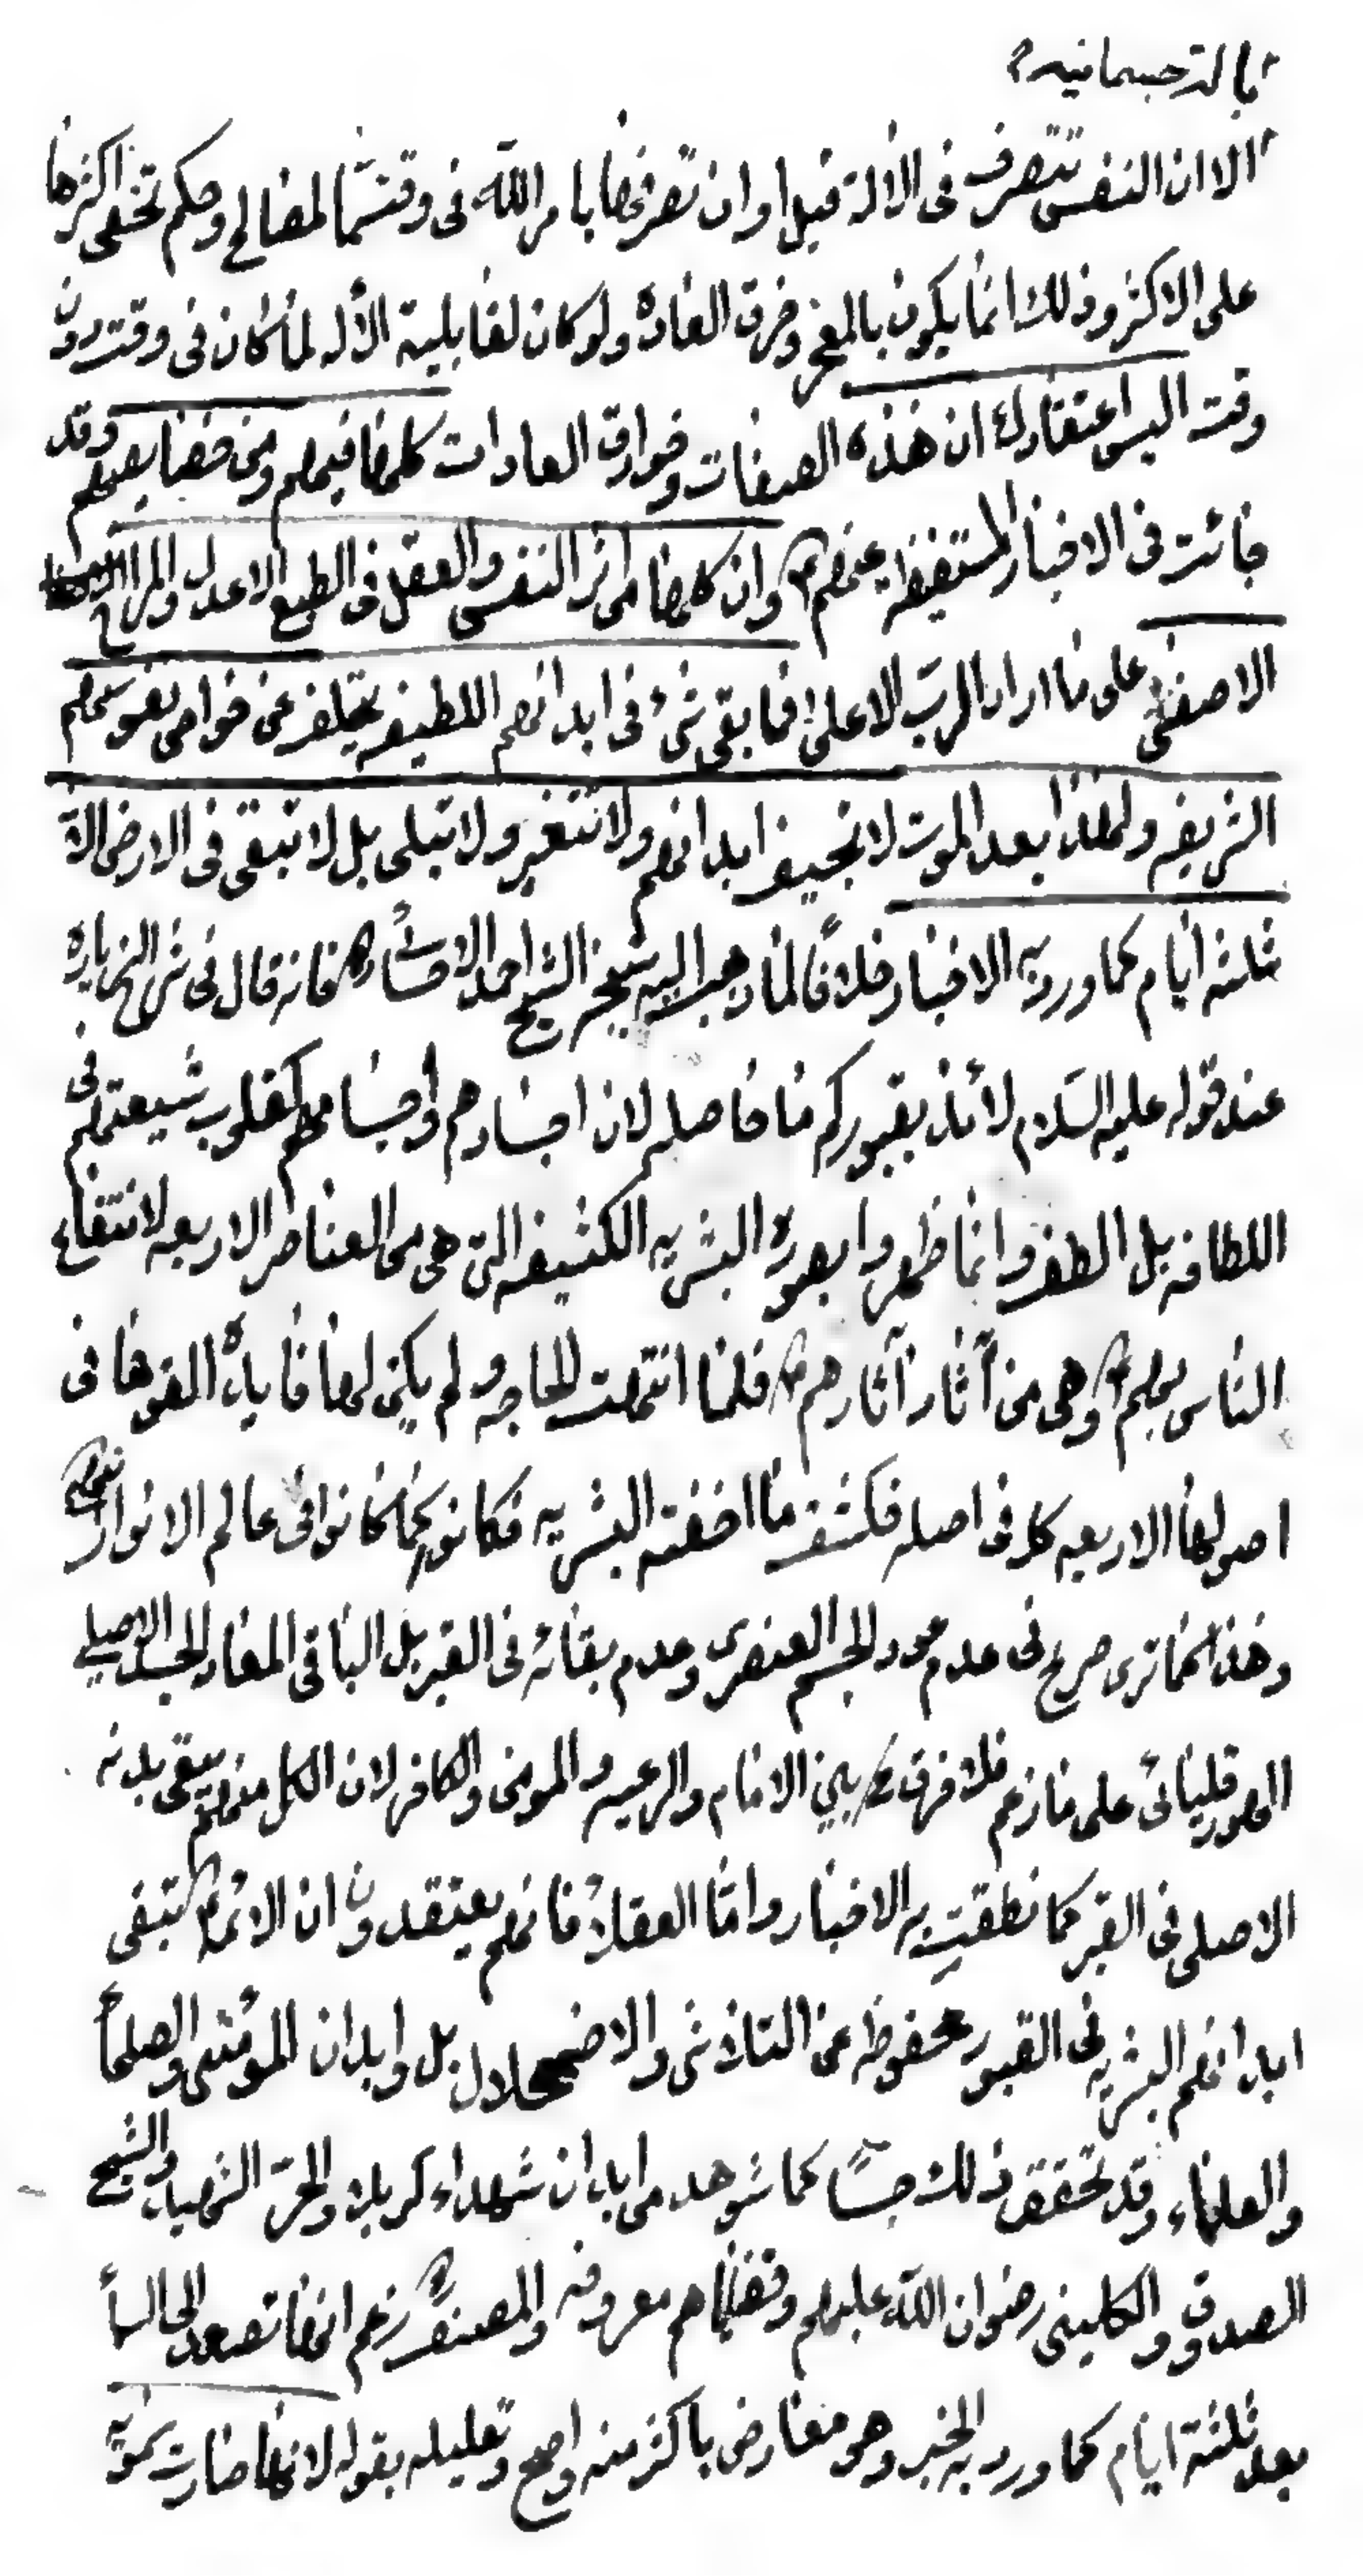 بالة جسمانية
الا ان النفس تتصرف فى الالة قبل او ان تصرفها بامر الله فى وقت ما لمصالح وحكم تخفى اكثرها
على الاكثر وذلك انما يكون بالمعجز وخرق العادة ولو كان لقابلية الآله لما كان فى وقت دون
وقت اليس اعتقادك ان هذه الصفات وخوارق العادات كلها فيهم ومن خصايصهم وقد
جائت فى الاخبار المستفيضه عنهم ع وان كلها من اثر النفس والعقل فى الطبع الاعدل والمزاج
الاصفى على ما اراد الرب الاعلى فما بقى شئ فى ابدانهم اللطيفه يتخلف عن خواص نفوسهم
الشريفه ولهذا بعد الموت لا تجيف ابدانهم ولا تتغير ولا تبلى بل لا تبقى فى الارض الا
ثلثه ايام كما ورد به الاخبار خلافا لما ذهب اليه شيخه الشيخ احمد الاحسائى ره فانه قال فى شرح الزياره
عند قوله عليه السلام لائذ بقبوركم ما حاصله لان اجسادهم واجسامهم كقلوب شيعتهم فى
اللطافه بل الطف وانما ظهروا بصورة البشريه الكثيفه التى هى من العناصر الاربعه لانتفاع
الناس بهم ع وهى من آثار آثارهم ع فلما انتهت الحاجه ولم يكن لها فايدة القوها فى
اصولها الاربعه كل فى اصله فكشف ما اخفته البشريه فكانوا كما كانوا فى عالم الانوار انتهى
وهذا كما ترى صريح فى عدم عود الجسم العنصرى وعدم بقائه فى القبر بل الباقى المعاد الجسد الاصلى
الهورقليائى على ما زعم فلا فرق ح بين الامام والرعيه والمومن والكافر لان الكل منهم يبقى بدنه
الاصلى فى القبر كما نطقت به الاخبار واما العقلاء فانهم يعتقدون ان الائمه ع تبقى
ابدانهم البشريه فى القبور محفوظه عن التلاشى والاضمحلال بل وابدان المؤمنين والصلحاء
والعلماء وقد تحقق ذلك حسا كما شوهد من ابدان شهداء كربلا والحر الشهيد والشيخ
الصدوق والكلينى رضوان الله عليهم وقضاياهم معروفه والمصنف ره زعم انها تصعد الى السماء
بعد ثلثة ايام كما ورد به الخبر وهو معارض باكثر منه واصح وتعليله بقوله لانها صارت بموته